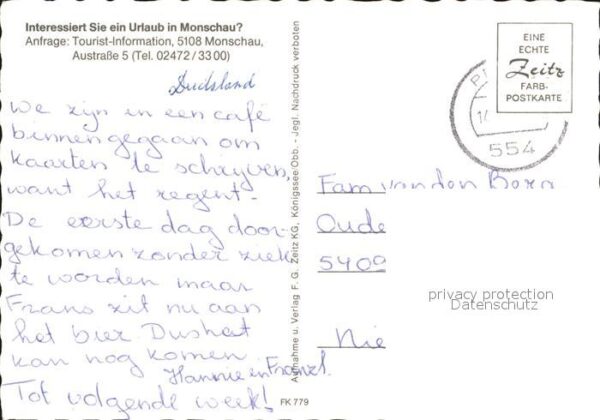 Interessiert Sie ein Urlaub in Monschau?
Anfrage: Tourist-Information, 5108 Monschau,
Austraße 5 (Tel. 02472/3300)
Duitsland
We zijn in een café
binnengegaan om
kaarten te schrijven,
want het regent.
De eerste dag door-
gekomen zonder ziek
te worden maar
Frans zit nu aan
het bier. Dus het
kan nog komen.
Hannie en Frans
Tot volgende week!
Aufnahme u. Verlag F. G. Zeitz KG, Königssee/Obb. - Jegl. Nachdruck verboten
FK 779
EINE
ECHTE
Zeitz
FARB-
POSTKARTE
554
Fam van den Born
Oude
5409
Nie
privacy protection
Datenschutz